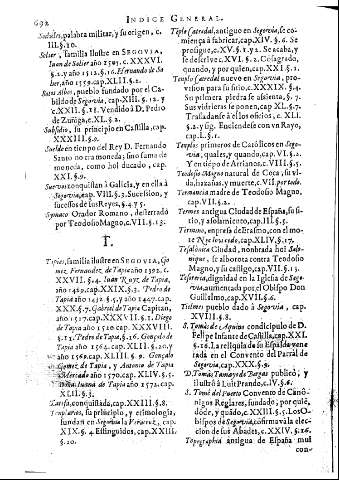 692
INDICE GENERAL.
Sodales, palabra militar, y su origen, c.
III. §. 10.
Solier, familia Ilustre en SEGOVIA,
Iuan de Solier año 1505. c. XXXVI.
§. 1. y año 1512. §. 16.
her, año 1550. cap. XLII. §. 2.
Sotos Albos, pueblo fundado por el Ca-
bildo de Segovia, cap. XIII. §. 12. y
c. XXII. §. 18. Vendido à D. Pedro
de Zuñiga, c. XL. §. 2.
Subsidio, su principio en Castilla, cap.
XXXIII. §.
Sueldo en tiempo del Rey D. Fernando
Santo no era moneda; sino suma de
moneda, como hoi ducado, cap.
XXI. §. 9.
Suevos conquistan à Galicia, y en ella à
Segovia, cap. VIII. §. 3. Sucesion, y
sucesos de sus Reyes, §. 4. y 5.
Symaco Orador Romano, desterrado
por Teodosio Magno, c. VII. §. 13.
T.
Tapias, familia ilustre en SEGOVIA, Go-
mez Fernandez de Tapia año 1392. c.
XXVII. §. 4. Iuan
año 1420. cap. XXIX. §. 3. Pedro de
Tapia año 1432. §. 5. y año 1447. cap.
XXX. §. 7. Gabriel de Tapia Capitan,
año 1517. cap. XXXVII. §. 1. Diego
de Tapia año 1520. cap. XXXVIII.
§. 13. Pedro de Tapia, §. 16. Gonçalo de
Tapia año 1564. cap. XLI. §. 20. y
año 1569. cap. XLIII. §. 9. Gonçalo
Gomez de Tapia, y Antonio de Tapia
Mercado año 1570. cap. XLIV. §. 5.
de Tapia año 1572. cap.
XLII. §. 3.
conquistada, cap. XXIII. §. 8.
Templarios, su principio, y etimologia,
fundan en Segovia la Veracruz, cap.
XIX. §. 4. Estinguidos, cap. XXIII.
§. 20.
Téplo Catedral, antiguo en Segovia, se co-
miença à fabricar, cap. XIV. §. 6. Se
prosigue, c. XV. §. 1. y 2. Se acaba, y
se descrive, c. XVI. §. 2. Consagrado,
quando, y por quien, cap. XXI. §. 1.
Téplo Catedral nuevo en Segovia, pro-
vision para su sitio, c. XXXIX. §. 4.
Su primera piedra se asienta, §. 7.
Sus vidrieras se ponen, cap. XL. §. 7.
Trasladanse à èl los oficios, c. XLI.
§. 2. y sig. Enciendese con un Rayo,
cap. L. §. 1.
Templos primeros de Católicos en Sego-
via; quales, y quando, cap. VI. §. 2.
Y en tiépo de Arrianos, c. VIII. §. 5.
Teodosio Magno natural de Coca, su vi-
da, hazañas, y muerte, c. VII. por todo.
Termancia madre de Teodosio Magno,
cap. VII. §. 2.
Termes antigua Ciudad de España, su si-
tio, y asolamiento, cap. III. §. 5.
Termino, empresa de Erasmo, con el mo-
te Ne, cap. XLIV. §. 17.
Tesalónica Ciudad, nonbrada hoi Salo-
nique, se alborota contra Teodosio
Magno, y su castigo, cap. VII. §. 13.
Tesoreria, dignidad en la Iglesia de Sego-
via, aumentada por el Obispo Don
Guillelmo, cap. XVII. §. 6.
pueblo dado à Segovia, cap.
XVIII. §. 8.
S. Tomàs de Aquino condicipulo de D.
Felipe Infante de Castilla, cap. XXI.
§. 16. La reliquia de su Espalda vene-
rada en el Convento del Parral de
Segovia, cap. XXX. §. 9.
D. Tomàs Tamayo de Bargas publicò, y
ilustrò à Luitprando, c. IV. §. 6.
S. Tomé del Puerto Convento de Canó-
nigos Reglares, fundado, por quié,
dóde, y quádo, c. XXIII. §. 5. Los O-
bispos de Segovia, confirmava la elec-
cion de sus Abades, c. XXIV. §. 16.
Topographia antigua de España mui
con-